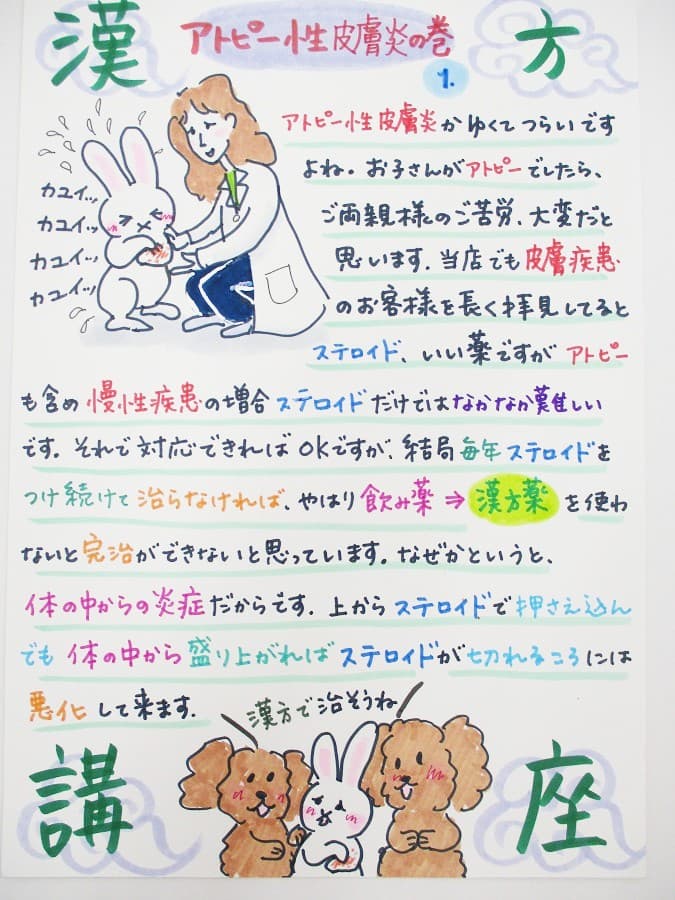 漢方
アトピー性皮膚炎の巻
1.
アトピー性皮膚炎かゆくてつらいです
よね。お子さんがアトピーでしたら、
ご両親様のご苦労、大変だと
思います。当店でも皮膚疾患
のお客様を長く拝見してると
ステロイド、いい薬ですがアトピー
も含め慢性疾患の増合ステロイドだけではなかなか難しい
です。それで対応できればOKですが、結局毎年ステロイドを
つけ続けて治らなければ、やはり飲み薬⇒漢方薬を使わ
ないと完治ができないと思っています。なぜかというと、
体の中からの炎症だからです。上からステロイドで押さえ込ん
でも体の中から盛り上がればステロイドが切れるころには
悪化して来ます。
カユイッ
カユイッ
カユイッ
カユイッ
漢方で治そうね
講座